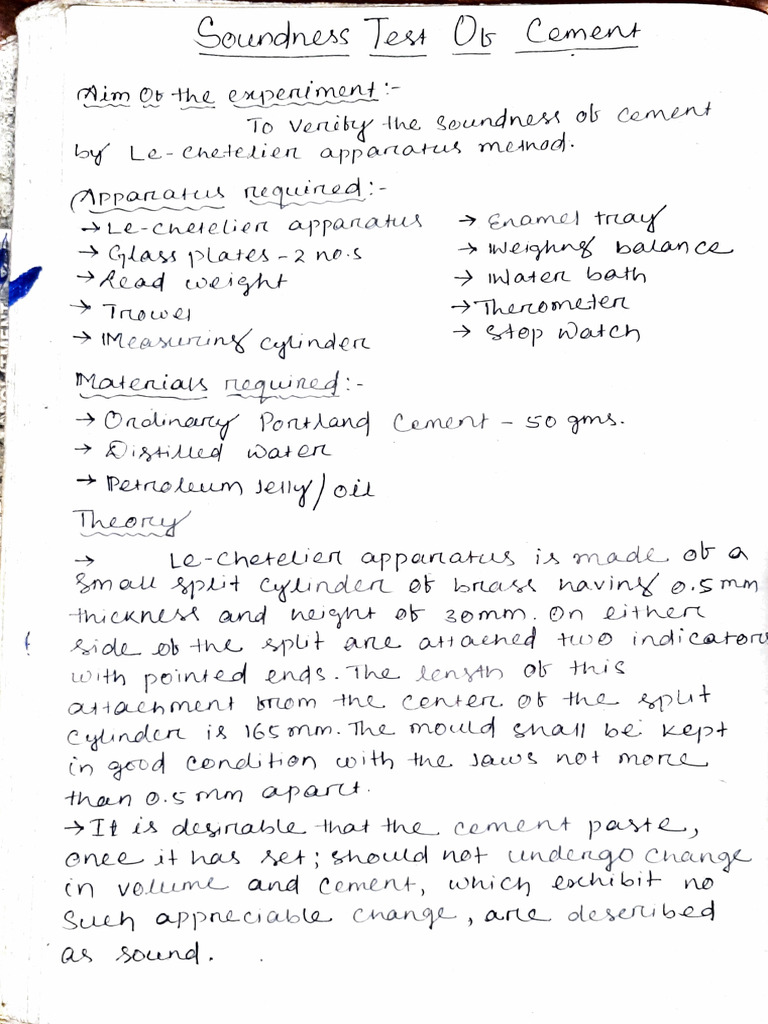 Soundness Test Of Cement
Aim Of the experiment:-
To verify the soundness of cement
by Le-chetelier apparatus method.
Apparatus required:-
→ Le-chetelier apparatus
→ Glass plates - 2 no.s
→ Lead weight
→ Trowel
→ Measuring cylinder
→ Enamel tray
→ Weighng balance
→ Water bath
→ Therometer
→ Stop Watch
Materials required:-
→ Ordinary Portland Cement - 50 gms.
→ Distilled water
→ Petroleum Jelly/oil
Theory
→ Le-chetelier apparatus is made of a
small split cylinder of brass having 0.5mm
thickness and height of 30mm. On either
side of the split are attached two indicators
with pointed ends. The length of this
attachment from the center of the split
cylinder is 165mm. The mould shall be kept
in good condition with the jaws not more
than 0.5mm apart.
→ It is desirable that the cement paste,
once it has set; should not undergo change
in volume and cement, which exhibit no
such appreciable change, are described
as sound.